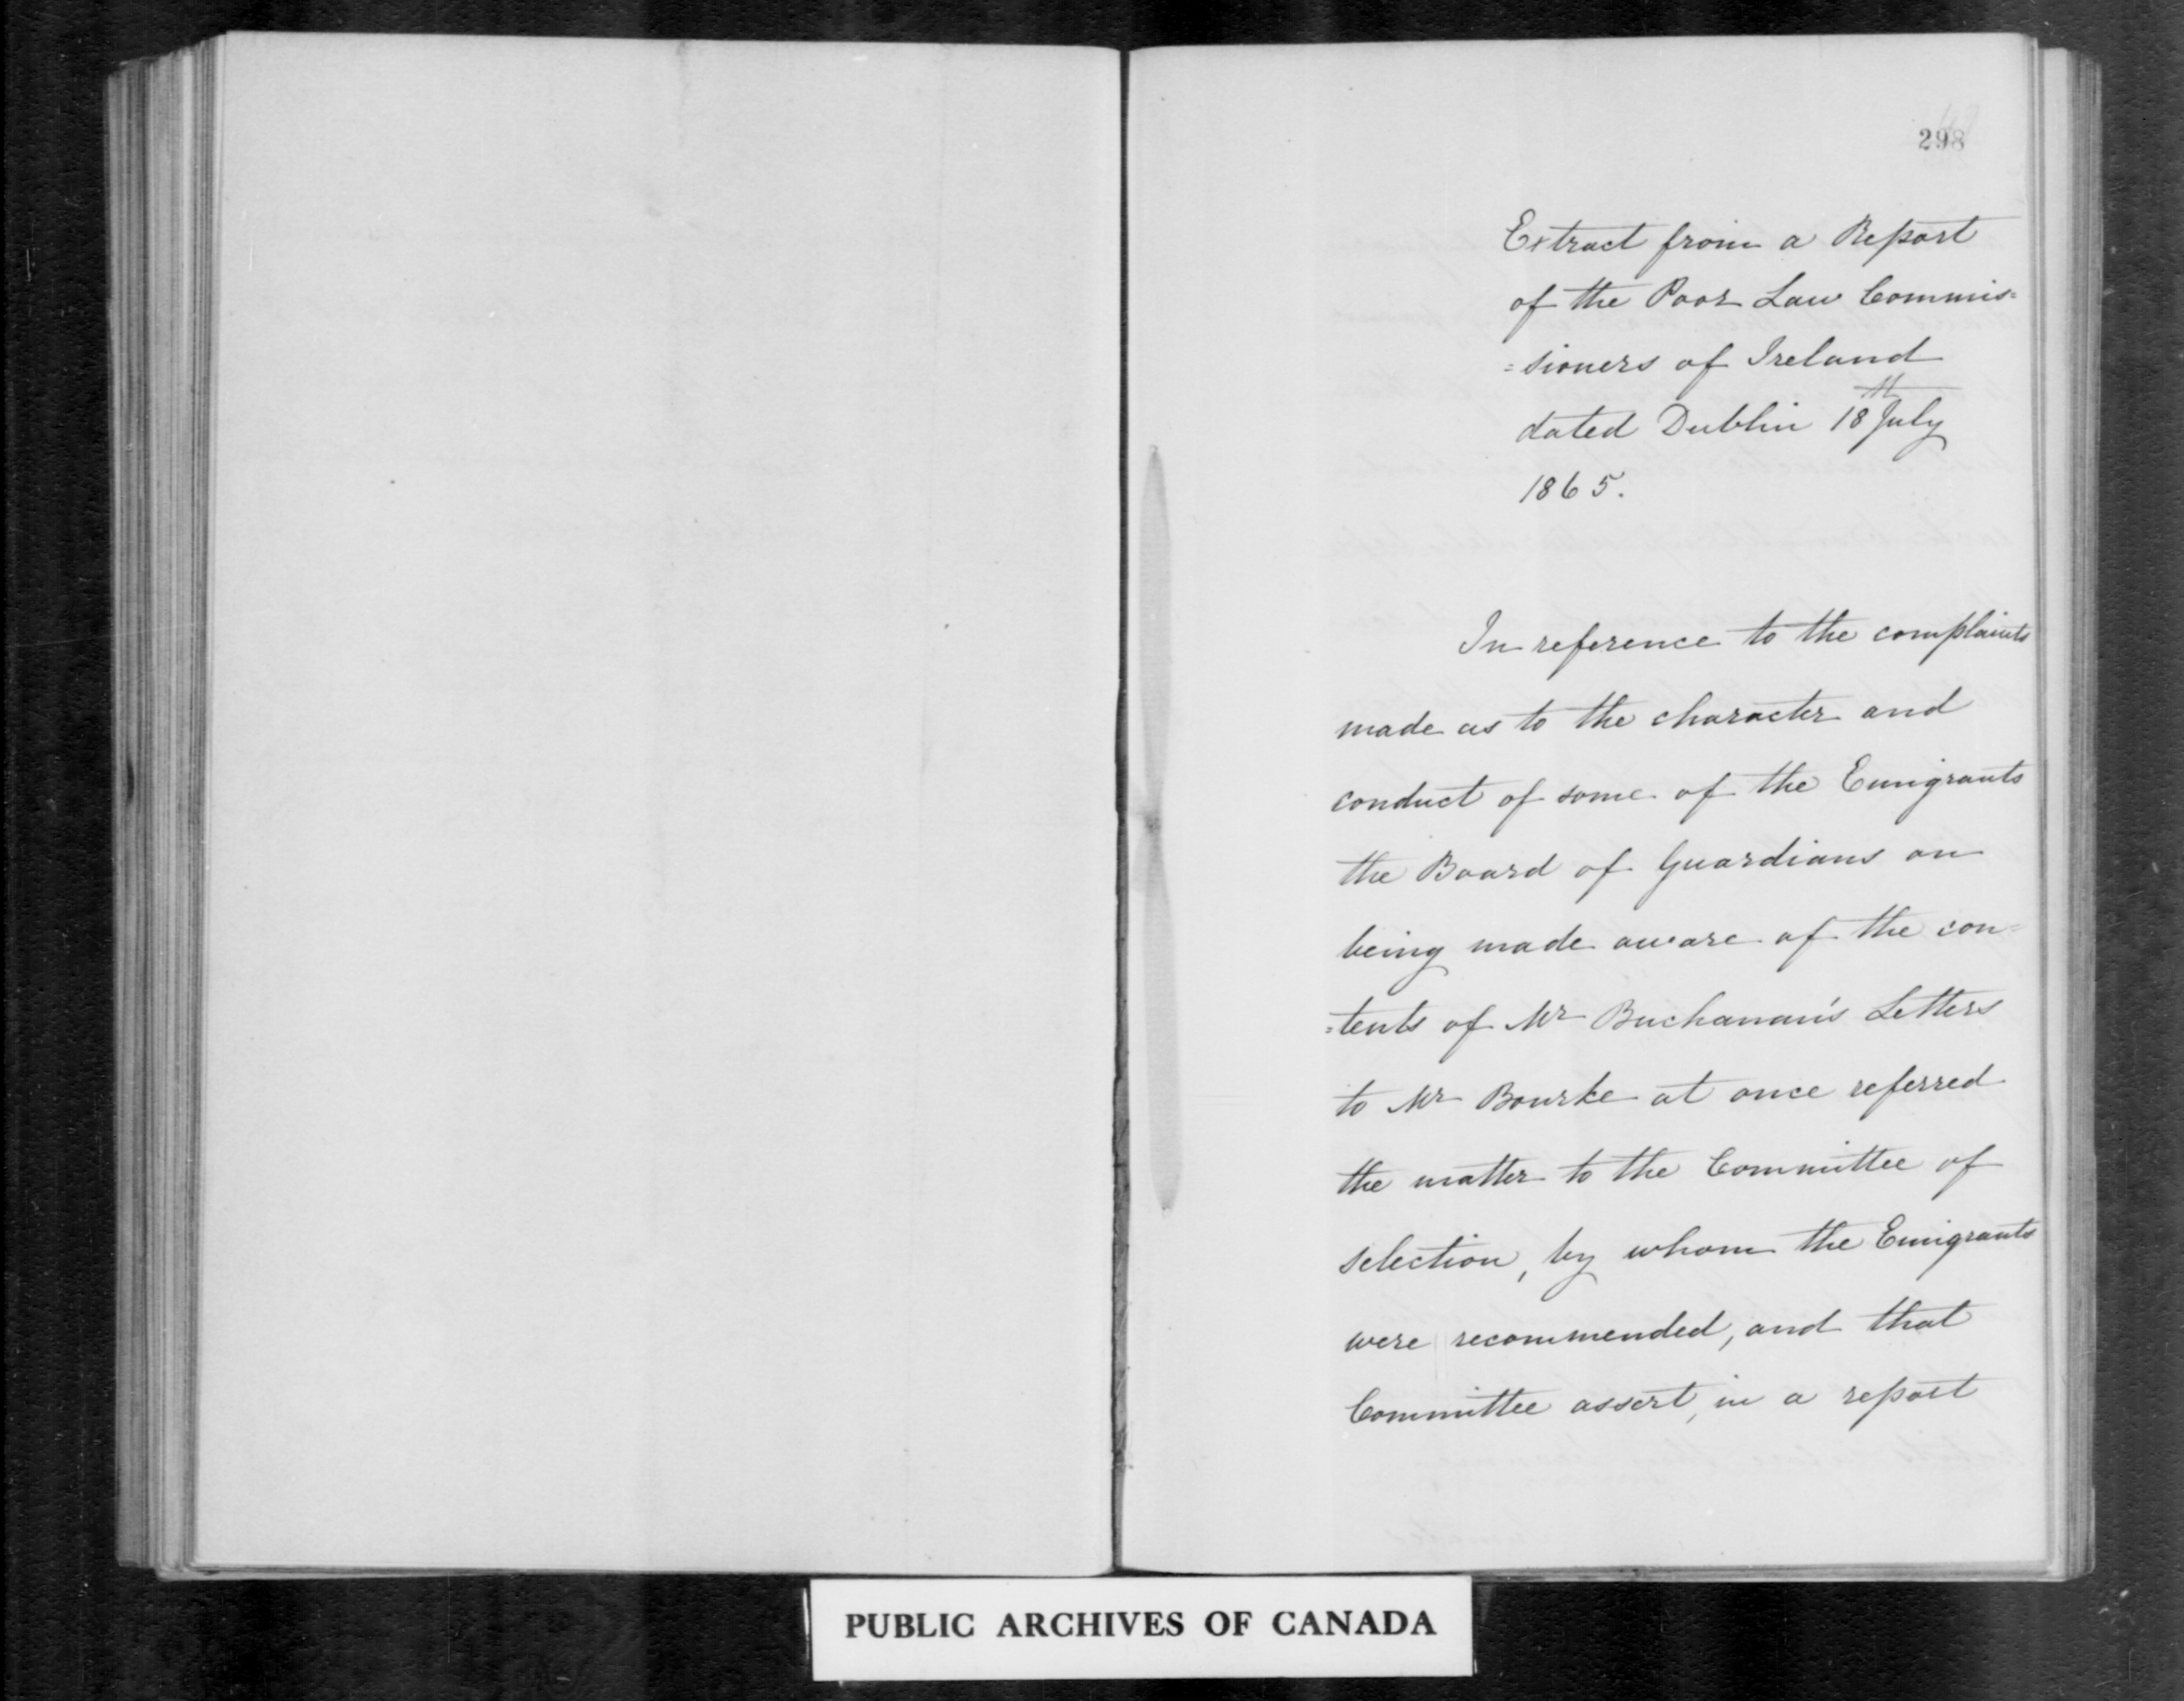 298
Extract from a Report
of the Poor Law Commis=
=sioners of Ireland
dated Dublin 18th July
1865.
In reference to the complaints
made as to the character and
conduct of some of the Emigrants
the Board of Guardians on
being made aware of the con=
=tents of Mr Buchanan's Letters
to Mr Bourke at once referred
the matter to the Committee of
selection, by whom the Emigrants
were recommended, and that
Committee assert, in a report
PUBLIC ARCHIVES OF CANADA